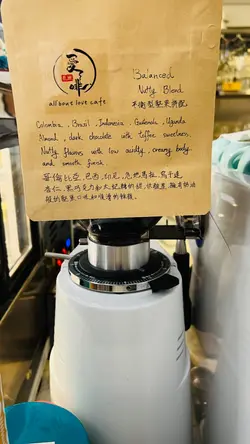 愛了啡
all bout love cafe
Balanced
Nutty Blend
平衡型堅果拼配
Colombia, Brazil, Indonesia, Guatemala, Uganda
Almond, dark chocolate with toffee sweetness,
Nutty flavors with low acidity, creamy body
and smooth finish.
哥倫比亞, 巴西, 印尼, 危地馬拉, 烏干達
杏仁, 黑巧克力和太妃糖的甜, 低酸度, 擁有奶油
般的堅果口味和順滑的餘韻.